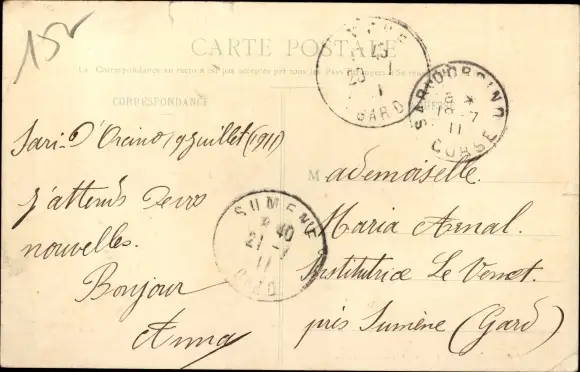 152
CARTE POSTALE
La Correspondance au recto n'est pas acceptée par tous les Pays
CORRESPONDANCE
Sari-D'Orcino, 9 juillet (1911)
J'attends de vos
nouvelles.
Bonjour
Anna
Mademoiselle
Maria Arnal
Institutrice Le Venet
près Sumène (Gard)
GARD
SARI D'ORCINO
CORSE
SUMÈNE
* 40
21 -7
11
GARD